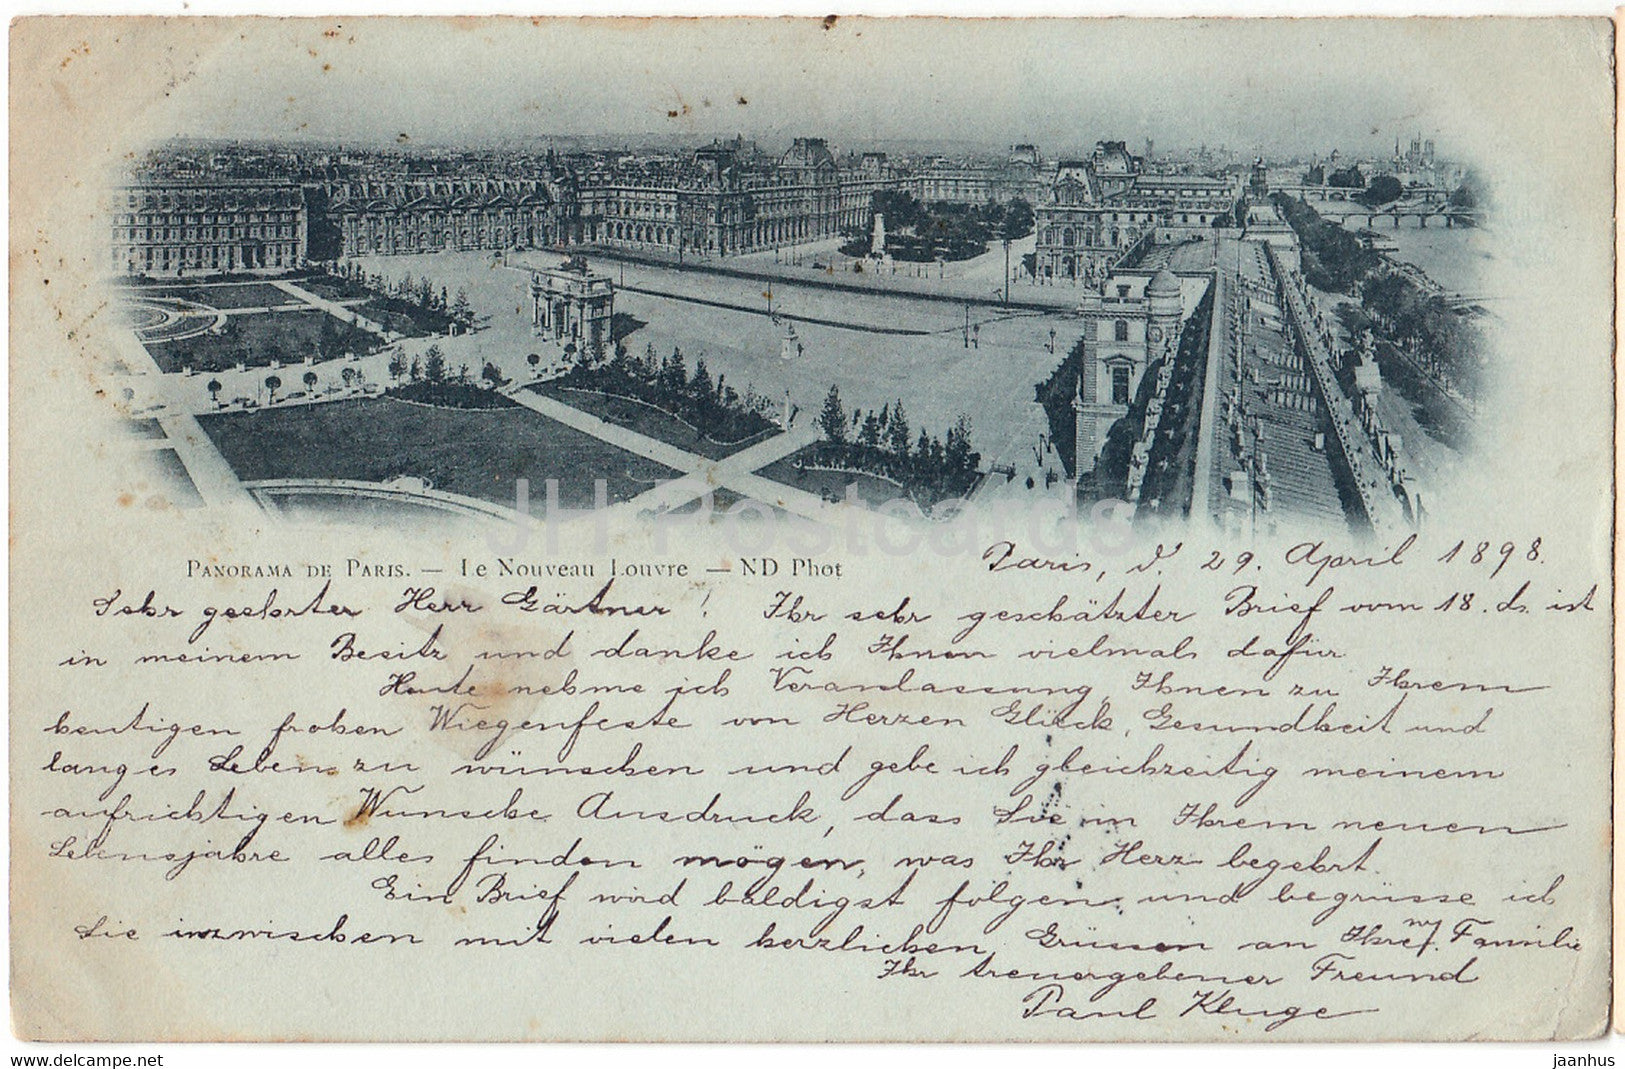 PANORAMA DE PARIS. — Le Nouveau Louvre — ND Phot
JH Postcards
Paris, d. 29. April 1898.
Sehr geehrter Herr Gärtner! Ihr sehr geschätzter Brief vom 18. ds. ist
in meinem Besitz und danke ich Ihnen vielmals dafür
Heute nehme ich Veranlassung, Ihnen zu Ihrem
heutigen frohen Wiegenfeste von Herzen Glück, Gesundheit und
langes Leben zu wünschen und gebe ich gleichzeitig meinem
aufrichtigen Wunsche Ausdruck, dass Sie in Ihrem neuen
Lebensjahre alles finden mögen, was Ihr Herz begehrt.
Ein Brief wird baldigst folgen und begrüsse ich
Sie inzwischen mit vielen herzlichen Grüssen an Ihre Familie
Ihr treuergebener Freund
Paul Kluge
www.delcampe.net
jaanhus